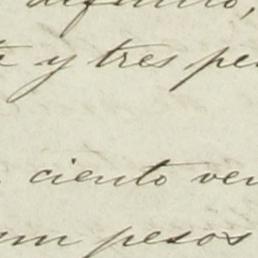 difunto,
y tres pe
ciento ve
pesos